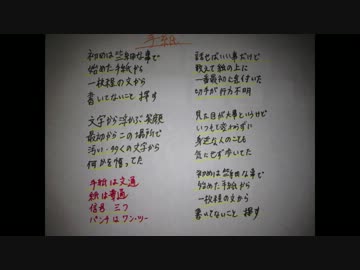 手紙
初めは些細な事で
始めた手紙から
一枚枝の文から
書いてないこと 探す
文字から浮かぶ笑顔
最初からこの場所で
汚い 幼くの文字から
何かを悟ってた
手紙は文通
紙は普通
信号 三つ
パンチはワン・ツー
話せばいい事だけど
敢えて紙の上に
一番最初に気付いた
切手が行方不明
見た目が大事というけど
いつも変わらずに
身近な人のことも
気にせず歩いてた
初めは些細な事で
始めた手紙から
一枚枝の文から
書いてないこと 探す